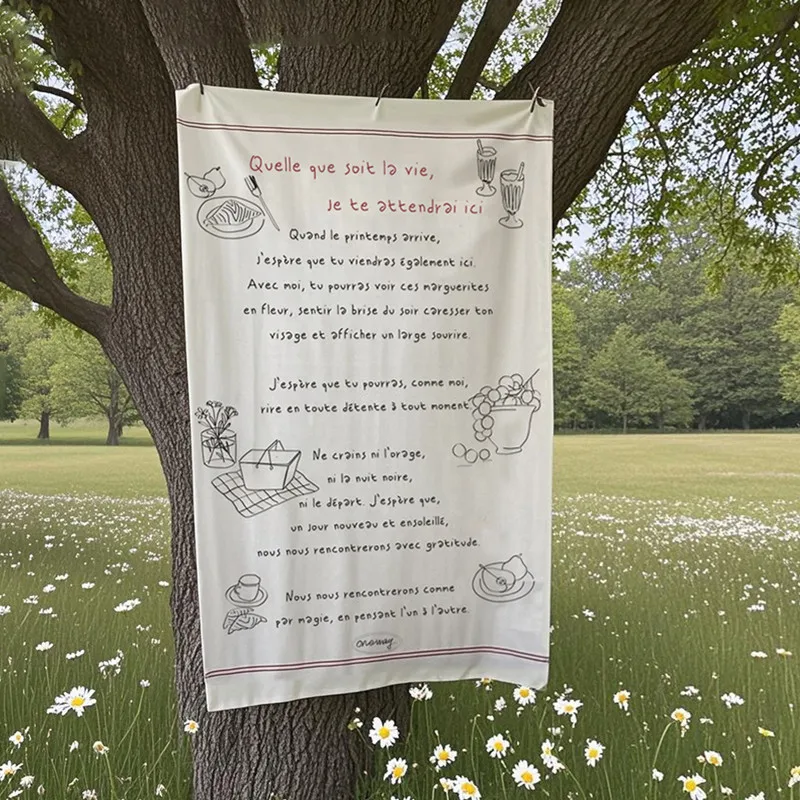 Quelle que soit la vie,
Je te attendrai ici
Quand le printemps arrive,
j'espère que tu viendras également ici.
Avec moi, tu pourras voir ces marguerites
en fleur, sentir la brise du soir caresser ton
visage et afficher un large sourire.
J'espère que tu pourras, comme moi,
rire en toute détente à tout moment.
Ne crains ni l'orage,
ni la nuit noire,
ni le départ. J'espère que,
un jour nouveau et ensoleillé,
nous nous rencontrerons avec gratitude.
Nous nous rencontrerons comme
par magie, en pensant l'un à l'autre.